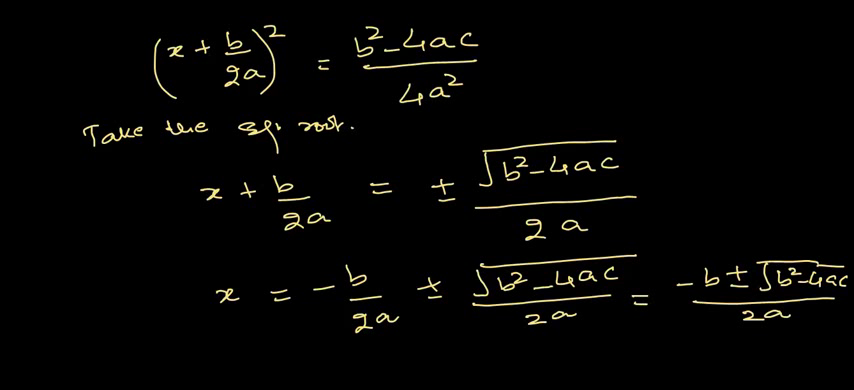 (x + b/2a)² = b²-4ac/4a²
Take the sq. root.
x + b/2a = ± √b²-4ac/2a
x = - b/2a ± √b²-4ac/2a = -b ± √b²-4ac/2a